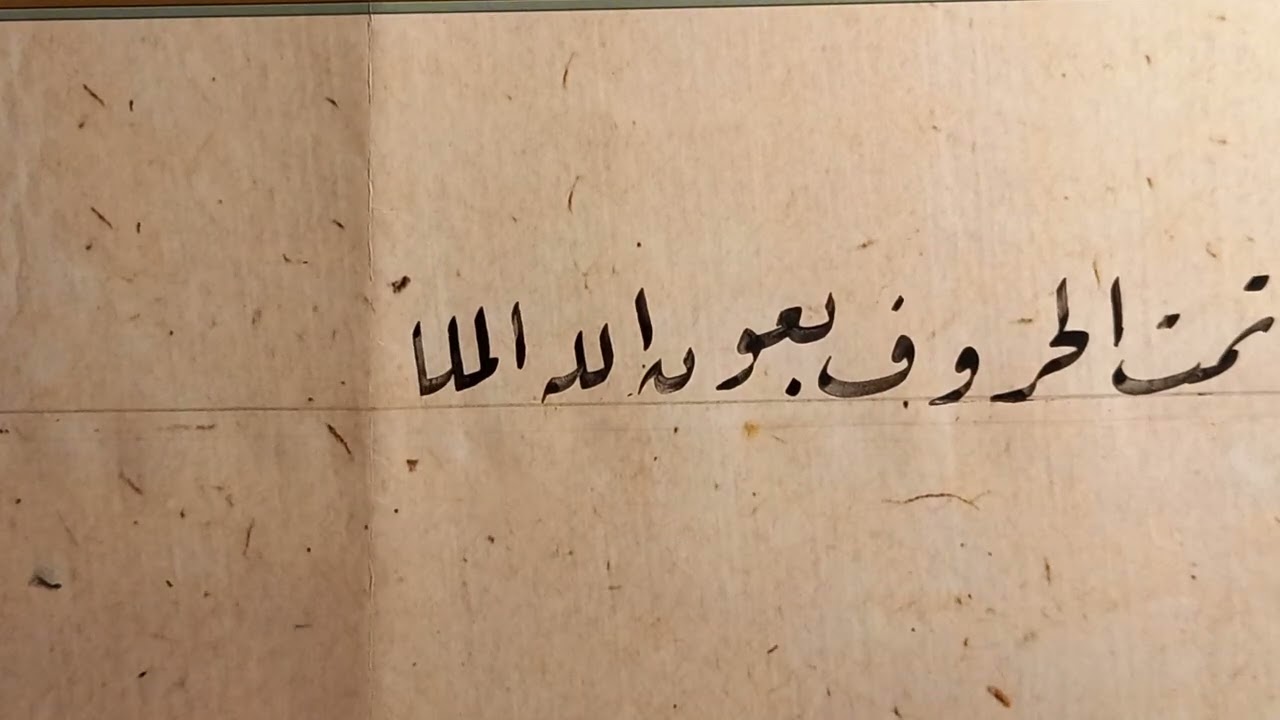 تمت الحروف بعون الله الملا